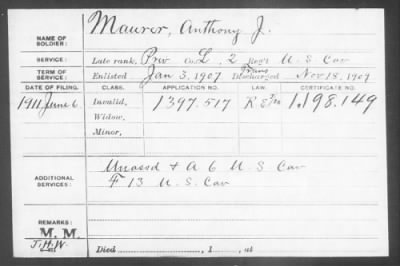 NAME OF SOLDIER: Maurer, Anthony J.
SERVICE: Late rank, Priv Co. L, 2 Reg't U. S. Cav
TERM OF SERVICE: Enlisted Jan 3, 1907 Trans Discharged Nov 18, 1907
DATE OF FILING. CLASS. APPLICATION NO. LAW. CERTIFICATE NO.
1911 June 6 Invalid, 1397.517 1.198.149
Widow,
Minor,
ADDITIONAL SERVICES: Unassd + A 6 U. S. Cav
F 13 U. S. Cav
REMARKS:
M. M.
J. H. W.
Died , 1 , at